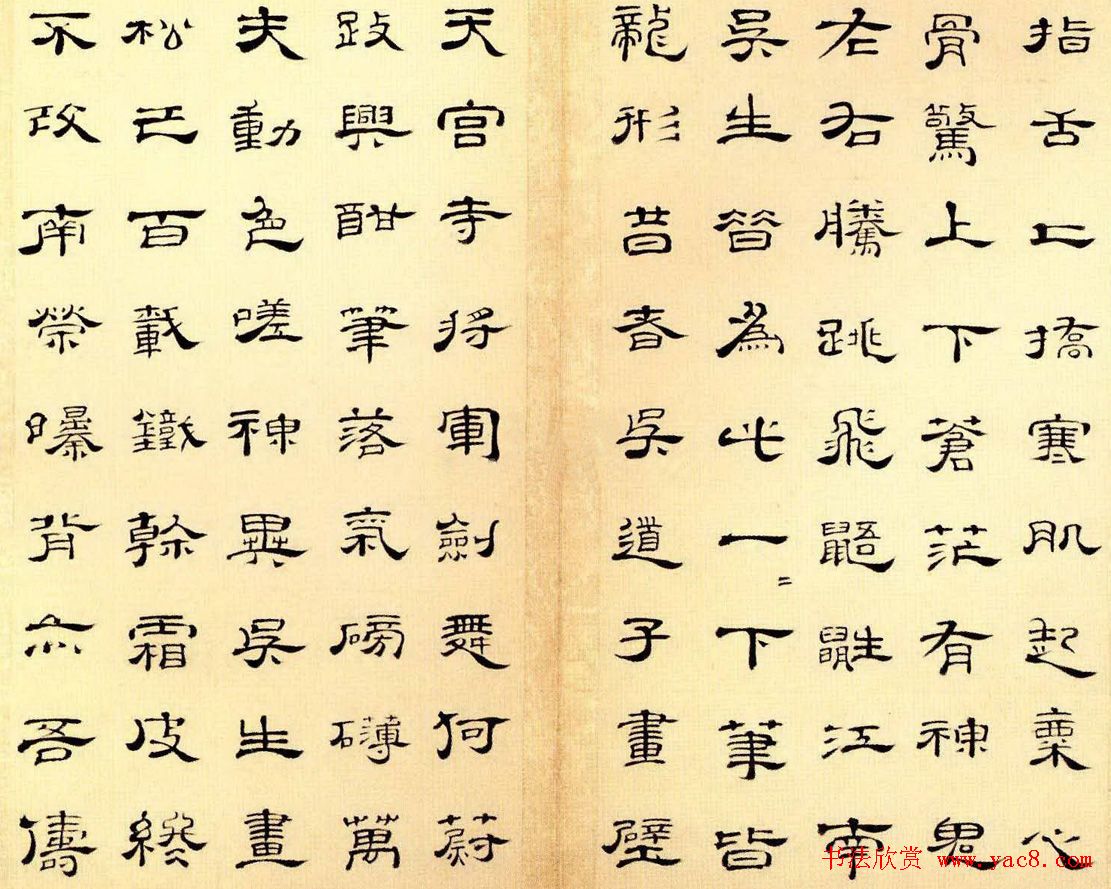 指舌上撟寒肌起粟心
骨驚上下蒼茫有神鬼
左右騰跳飛鼯鼪江南
吳生替為此一〻下筆皆
龍形昔者吳道子畫壁
天宮寺將軍劍舞何蔚
跂興酣筆落氣磅礴萬
夫動色嗟神異吳生畫
松已百載鐵幹霜皮終
不改南榮曝背亦吾儔
书法欣赏 www.yac8.com